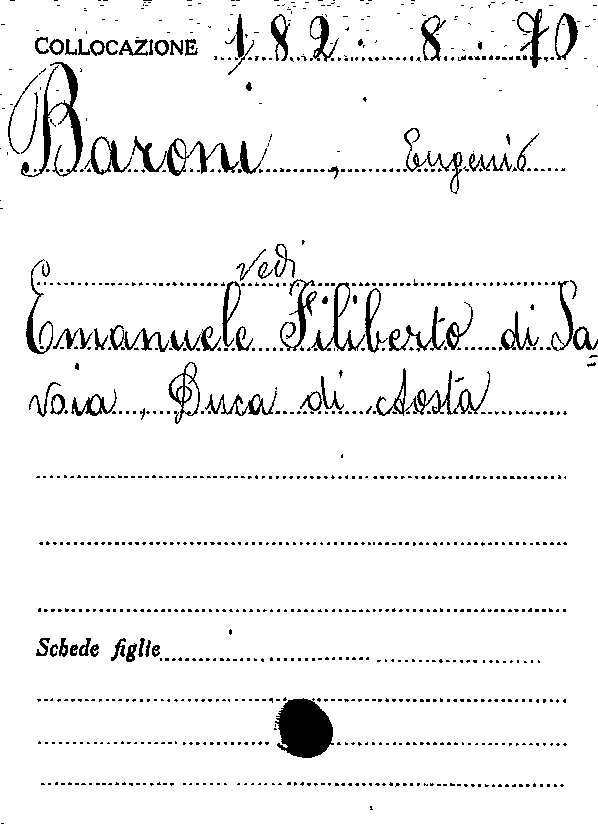 COLLOCAZIONE 182. 8. 70
Baroni, Eugenio
vedi
Emanuele Filiberto di Sa=
voia, Duca di Aosta
Schede figlie